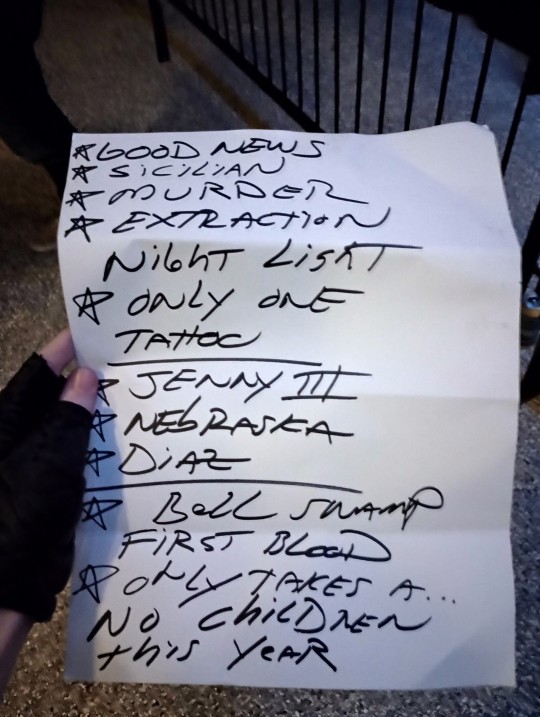 ☆ GOOD NEWS
☆ SICILIAN
☆ MURDER
☆ EXTRACTION
NIGHT LIGHT
☆ ONLY ONE
TAHOE
☆ JENNY III
☆ NEBRASKA
☆ DIAZ
☆ BELL SWAMP
FIRST BLOOD
☆ ONLY TAKES A...
NO CHILDREN
THIS YEAR